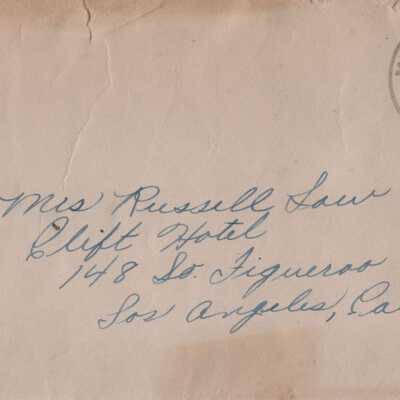 Mrs Russell Law
Clift Hotel
148 So. Figueroa
Los Angeles, Ca